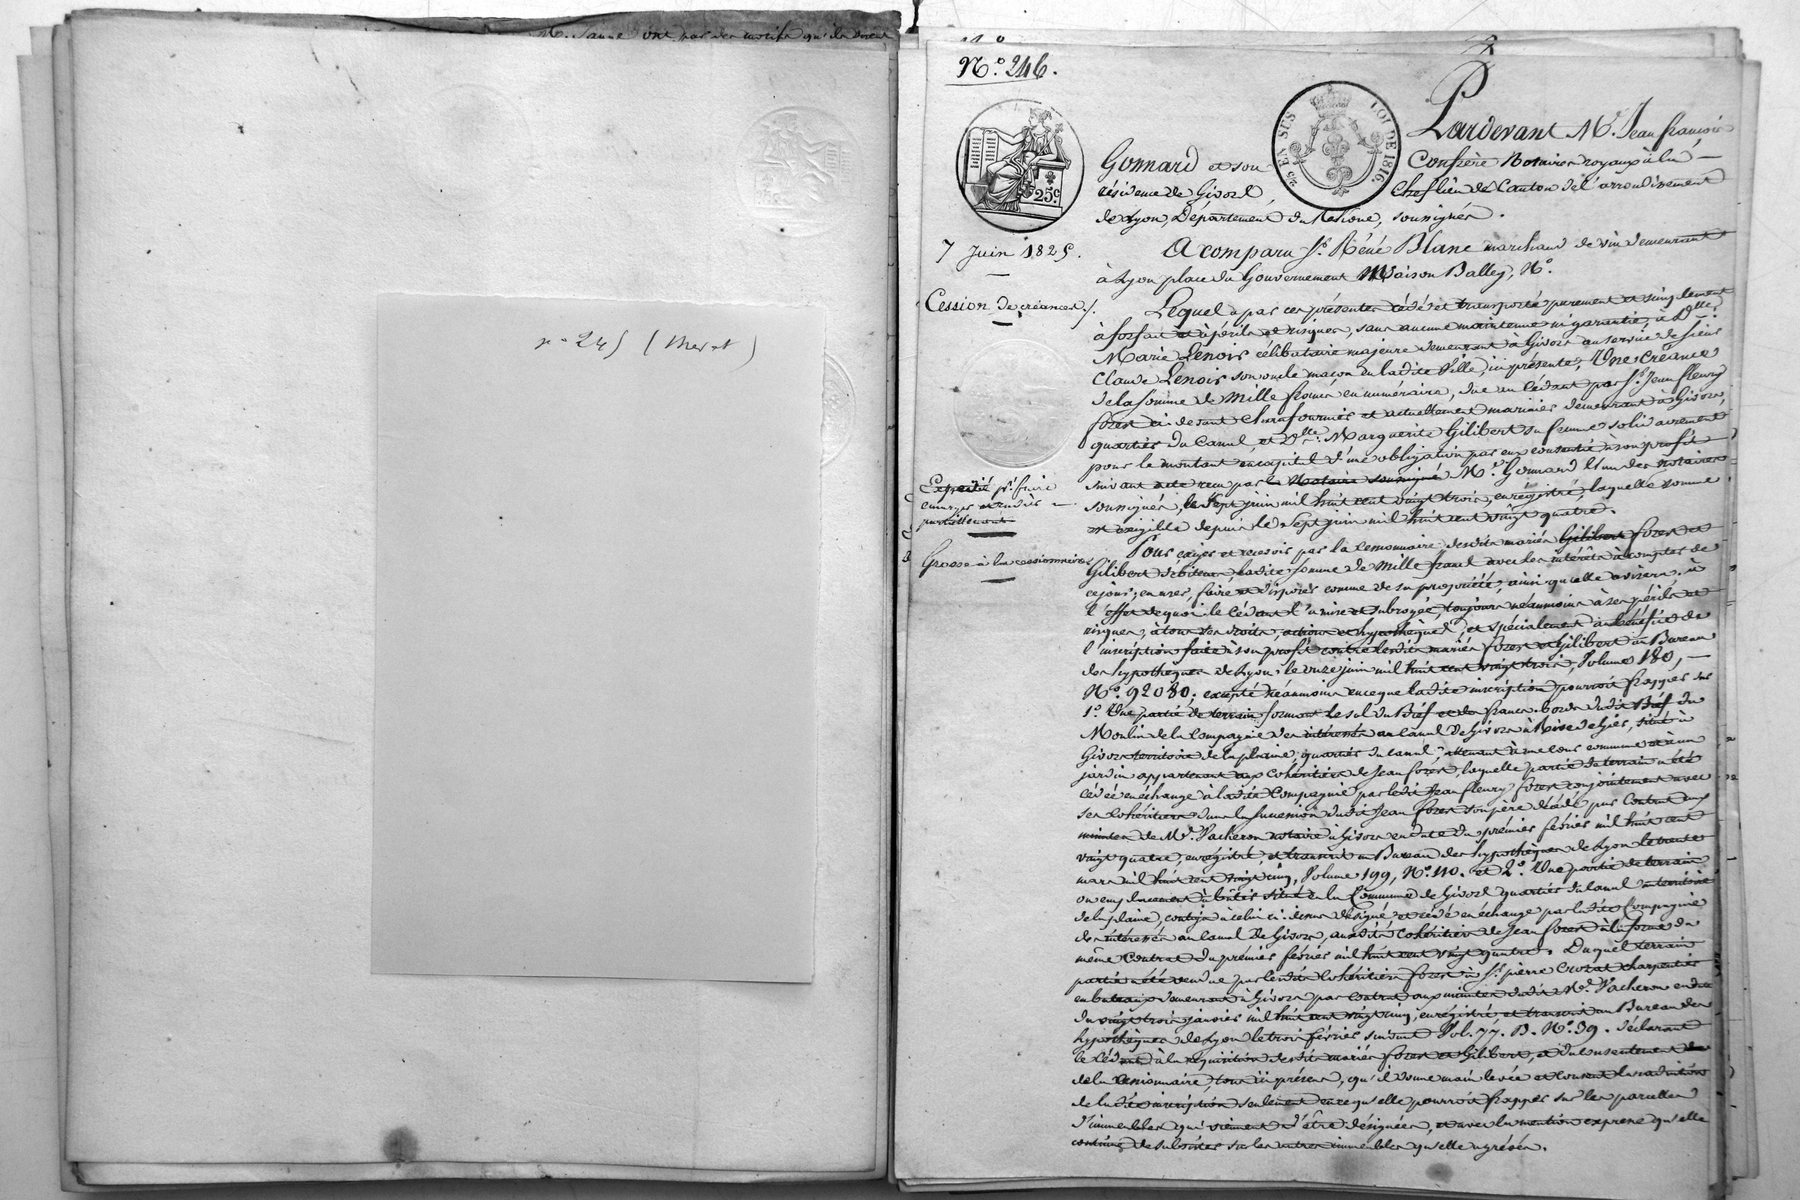 M. Jaune ont par des motifs qu'ils
n° 245 (Meret)
N.° 246.
EN SUS
LOI DE 1816.
25.c
Pardevant M.e Jean françois
Gonnard et son Confrère Notaires royaux à la
résidence de Givors, Chef lieu de Canton de l'arrondissement
de Lyon, Département du Rhône, soussignés.
7 Juin 1825.
A comparu S.r Réné Blanc marchand de vin demeurant
à Lyon place du Gouvernement Maison Balley, N.°
Cession de créances.
Lequel a par ces présentes cédé et transporté purement et simplement
à forfait et à périls et risques, sans aucune maintenue ni garantie, à D.lle
Marie Lenoir célibataire majeure demeurant à Givors au service de sieur
Claude Lenoir son oncle maçon de ladite Ville, ici présente, Une Créance
de la somme de Mille francs en numéraire, due au Cédant par S.r Jean fleury
forest ci devant Chaufournier et actuellement marinier demeurant à Givors,
quartier du Canal et D.lle Marguerite Gilibert sa femme solidairement
pour le montant en capital d'une obligation par eux consentie à son profit
suivant acte reçu par le Notaire soussigné M.e Gonnard l'un des notaires
soussignés, le Sept juin mil huit cent vingt trois, enrégistré, laquelle somme
est exigible depuis le Sept juin mil huit cent vingt quatre.
Expédié p.r faire
Grosse à la cessionnaire
Pour exiger et recevoir par la Cessionnaire desdits mariés Gilibert forest et
Gilibert débiteurs, ladite somme de Mille francs avec les intérêts à compter de
ce jour; en user, faire et disposer comme de sa propriété, ainsi qu'elle avisera, à
l'effet de quoi le Cédant l'a mise et subrogée, toujours néanmoins à ses périls et
risques, à tous ses droits, actions et hypothèques, et spécialement à bénéfice de
l'inscription faite à son profit contre lesdits mariés forest et Gilibert au Bureau
des hypothèques de Lyon, le onze juin mil huit cent vingt trois, Volume 180,
N.° 92080, excepté néanmoins en ce que ladite inscription pourroit frapper sur
1.° Une partie de terrain formant le sol du Bief et des francs-bords dudit Bief du
Moulin de la Compagnie des intéressés au Canal de Givors à Rive de Gier, situé à
Givors territoire de la plaine, quartier du Canal, attenant à une cour commune et à un
jardin appartenant aux cohéritiers de Jean forest, laquelle partie de terrain a été
cédée en échange à ladite Compagnie par ledit Jean fleury forest conjointement avec
ses Cohéritiers dans la succession dudit Jean forest son père décédé par Contrat aux
minutes de M.e Vacheron notaire à Givors en date du premier février mil huit cent
vingt quatre, enrégistré, et transcrit au Bureau des hypothèques de Lyon le trente
mars mil huit cent vingt cinq, Volume 199, N.° 110. et 2.° Une partie de terrain
ou emplacement à bâtir situé en la Commune de Givors quartier du Canal
de la plaine, contigu à celui ci-dessus désigné et cédé en échange par ladite Compagnie
des intéressés au Canal de Givors, auxdits Cohéritiers de Jean forest à la forme du
même Contrat du premier février mil huit cent vingt quatre. Duquel terrain
partie a été vendue par lesdits Cohéritiers forest à S.r pierre Crozat charpentier
en bateaux demeurant à Givors par Contrat aux minutes dudit M.e Vacheron en date
du vingt trois janvier mil huit cent vingt cinq, enrégistré et transcrit au Bureau des
hypothèques de Lyon le trois février suivant Vol. 77. B. N.° 39. Déclarant
le Cédant à la réquisition desdits mariés forest et Gilibert, et du consentement
de la Cessionnaire, tous ici présens, qu'il donne main levée et consent la radiation
de ladite inscription seulement en ce qu'elle pourroit frapper sur les parcelles
d'immeubles qui viennent d'être désignées, et avec la mention expresse qu'elle
continue de subsister sur les autres immeubles qu'elle a grévés.